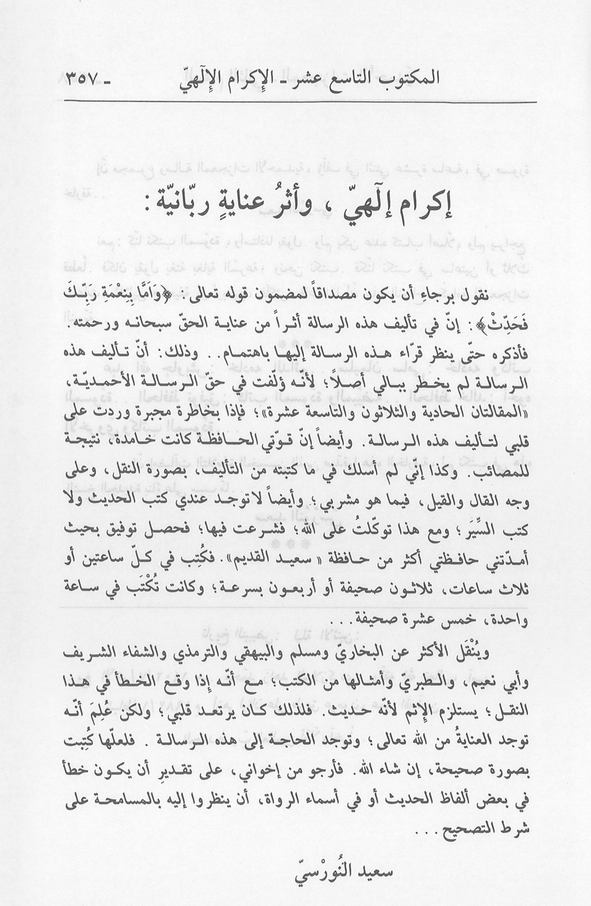 المكتوب التاسع عشر ـ الإكرام الإلٓهيّ ـ ٣٥٧
إكرام إلٓهيّ ، وأثرُ عنايةٍ ربّانيّة :
نقول برجاءِ أن يكون مصداقاً لمضمون قوله تعالى: ﴿وَأَمَّا بِنِعْمَةِ رَبِّكَ
فَحَدِّثْ﴾: إنّ في تأليف هذه الرسالة أثراً من عناية الحقّ سبحانه ورحمته.
فأذكره حتّى ينظر قرّاء هذه الرسالة إليها باهتمام.. وذلك: أنّ تأليف هذه
الرسالة لم يخطر ببالي أصلاً؛ لأنه وُلفت في حقّ الرسالة الأحمديّة،
«المقالتان الحادية والثلاثون والتاسعة عشرة»؛ فإذا بخاطرة مجبرة وردت على
قلبي لتأليف هذه الرسالة. وأيضاً إنّ قوّتي الحافظة كانت خامدة، نتيجة
للمصائب. وكذا إنّي لم أسلك في ما كتبته من التأليف، بصورة النقل، وعلى
وجه القال والقيل، فيما هو مشربي؛ وأيضاً لا توجد عندي كتب الحديث ولا
كتب السِّيَر؛ ومع هذا توكّلتُ على الله؛ فشرعت فيها؛ فحصل توفيق بحيث
أمدّتني حافظتي أكثر من حافظة « سعيد القديم». فكُتِب في كلّ ساعتين أو
ثلاث ساعات، ثلاثون صحيفة أو أربعون بسرعة؛ وكانت تُكْتَب في ساعة
واحدة، خمس عشرة صحيفة...
ويُنْقَل الأكثر عن البخاريّ ومسلم والبيهقي والترمذي والشفاء الشريف
وأبي نعيم، والطبريّ وأمثالها من الكتب؛ مع أنّه إذا وقع الخطأ في هذا
النقل؛ يستلزم الإثم لأنّه حديث. فلذلك كان يرتعد قلبي؛ ولكن عُلِمَ أنّه
توجد العنايةُ من الله تعالى؛ وتوجد الحاجة إلى هذه الرسالة . فلعلّها كُتِبت
بصورة صحيحة، إن شاء الله. فأرجو من إخواني، على تقديرِ أن يكون خطأ
في بعض ألفاظ الحديث أو في أسماء الرواة، أن ينظروا إليه بالمسامحة على
شرط التصحيح...
سعيد النُّورْسيّ